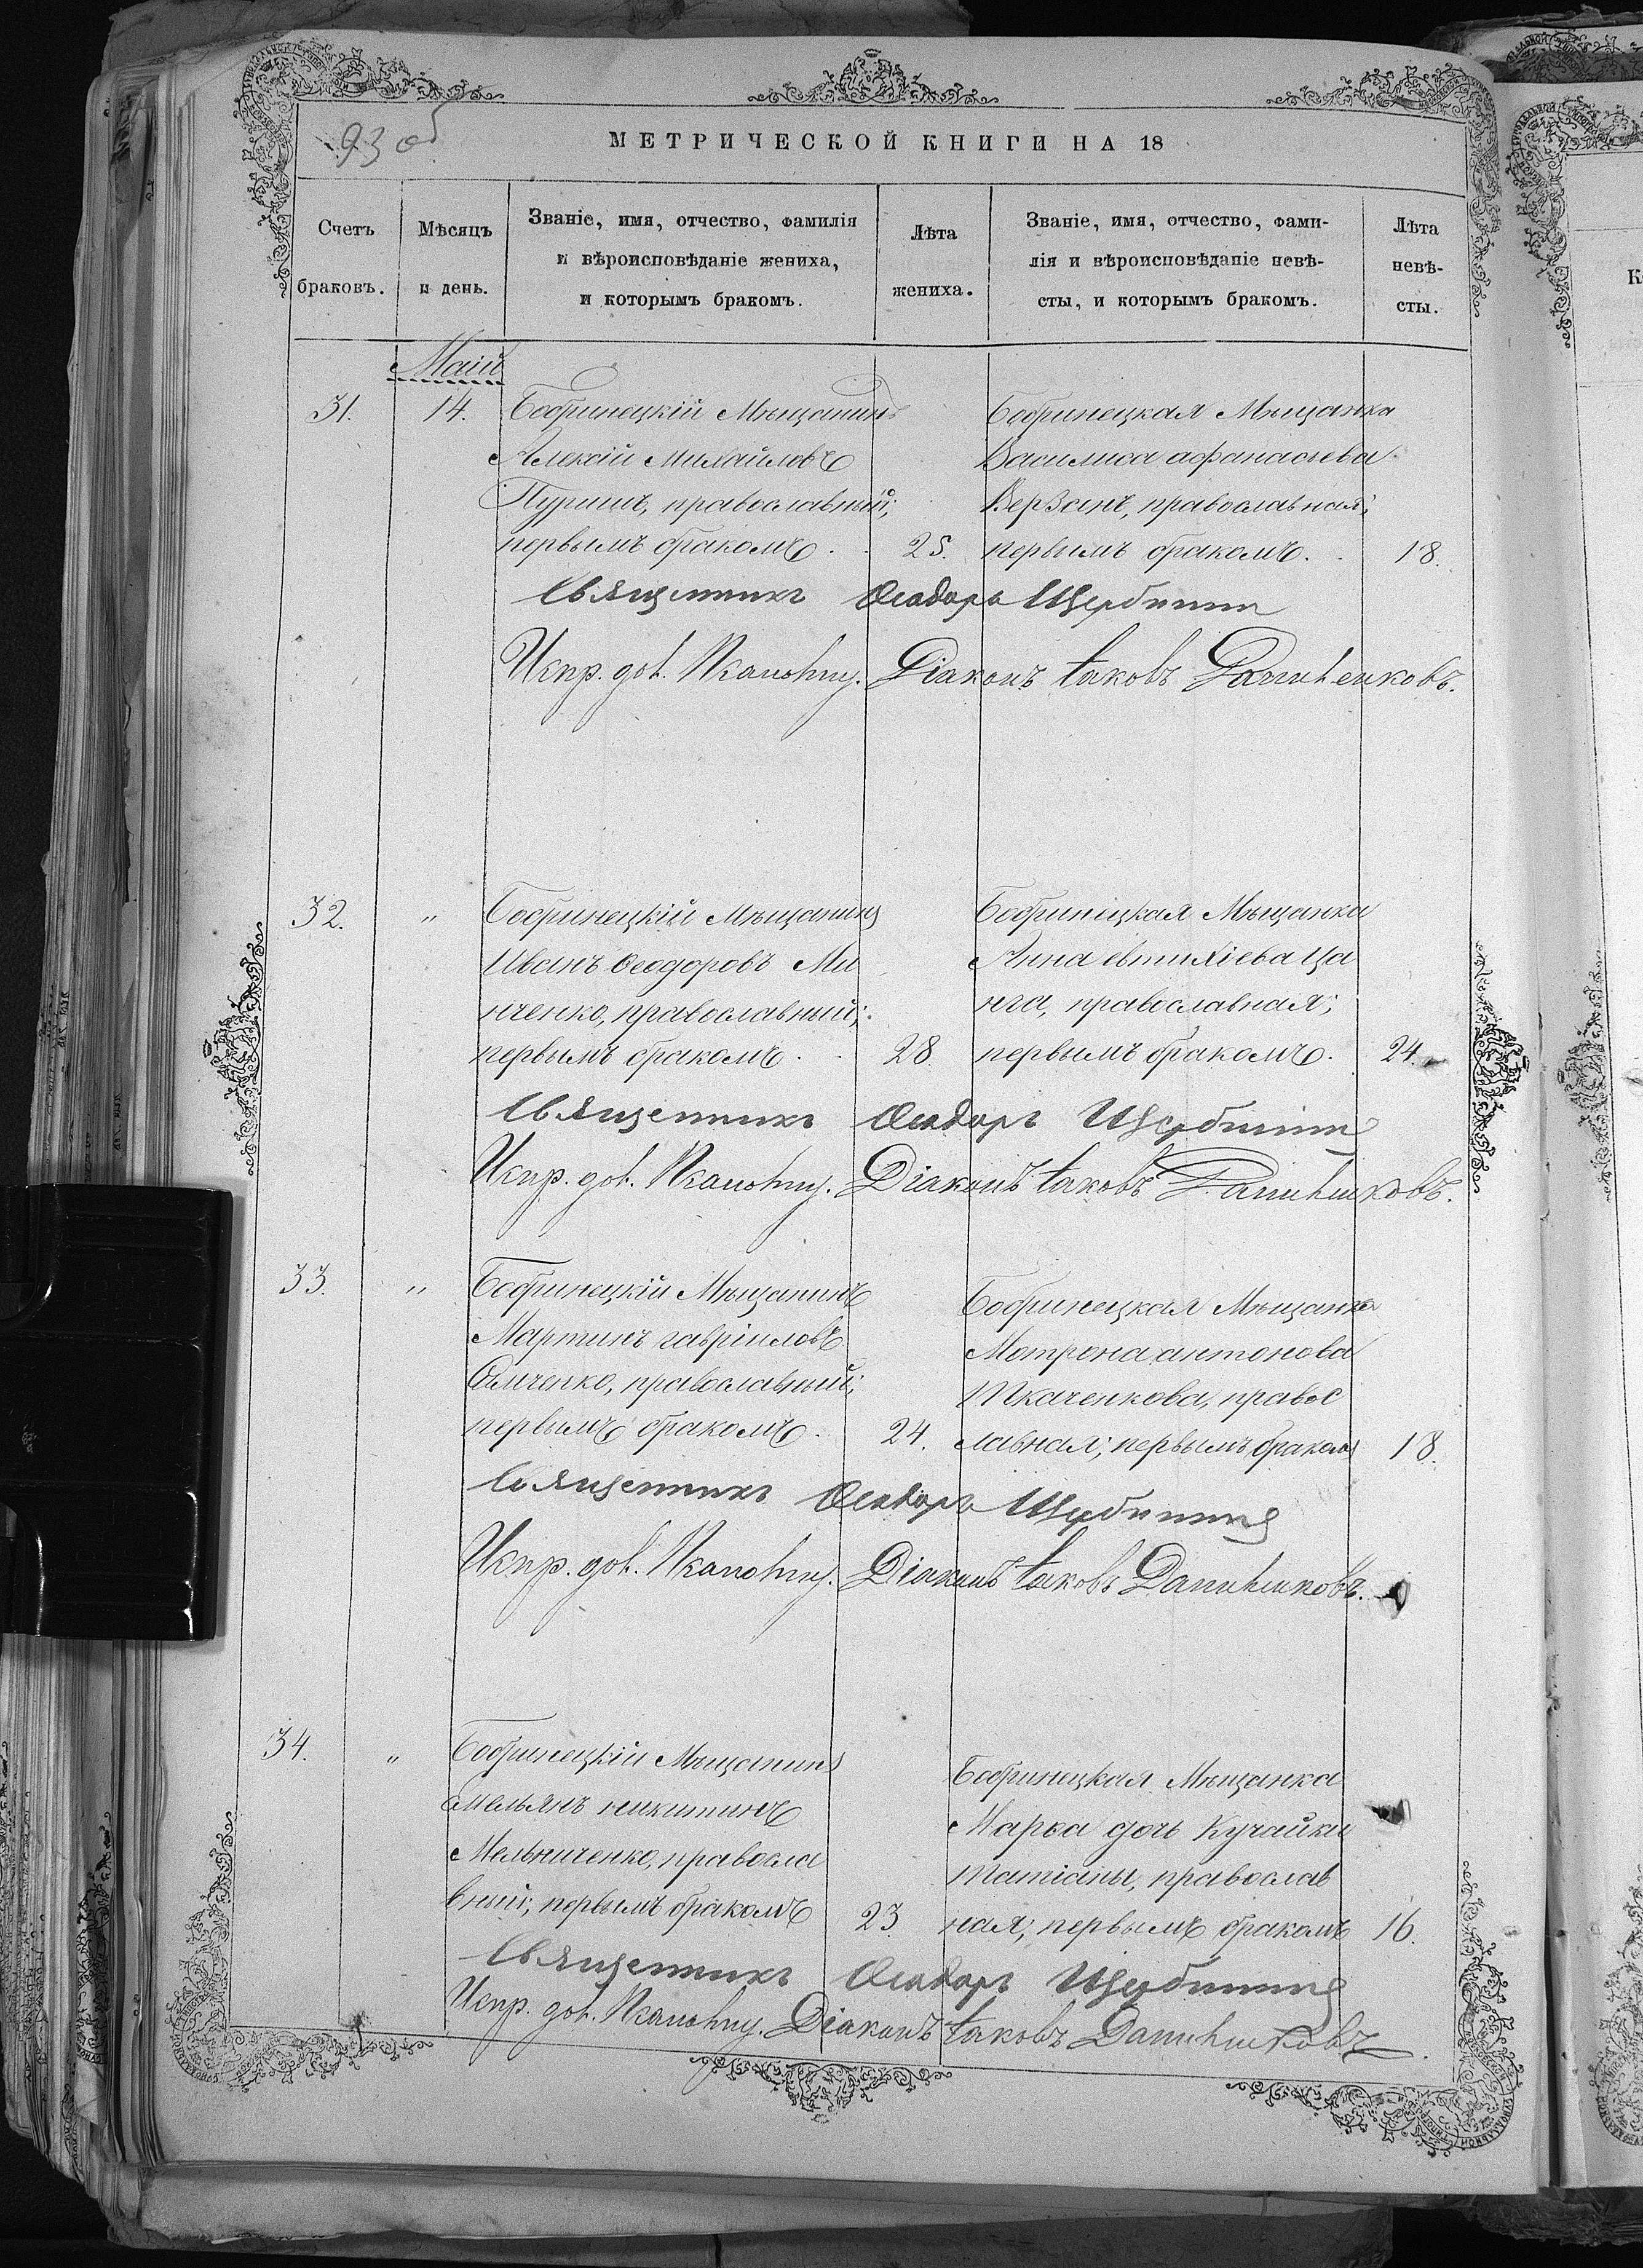 93 об
МЕТРИЧЕСКОЙ КНИГИ НА 18
Счетъ браковъ.
Мѣсяцъ и день.
Званіе, имя, отчество, фамилія
и вѣроисповѣданіе жениха,
и которымъ бракомъ.
Лѣта
жениха.
Званіе, имя, отчество, фами-
лія и вѣроисповѣданіе невѣ-
сты, и которымъ бракомъ.
Лѣта
невѣ-
сты.
Маій
31. 14. Бобринецкій Мѣщанинъ
Алексій Михайловъ
Пуришъ, православный;
первымъ бракомъ. 25.
Бобринецкая Мѣщанка
Василиса афанасіева
православная;
первымъ бракомъ. 18.
Священникъ Ѳеодоръ Щербининъ
Испр. дол. Діаконъ Іаковъ
32. " Бобринецкій Мѣщанинъ
Иванъ Ѳеодоровъ Ми
нченко, православный;
первымъ бракомъ. 28.
Бобринецкая Мѣщанка
Анна евтихіева Ца
нга, православная;
первымъ бракомъ. 24.
Священникъ Ѳеодоръ Щербининъ
Испр. дол. Діаконъ Іаковъ
33. " Бобринецкій Мѣщанинъ
Мартинъ гавріиловъ
православный;
первымъ бракомъ. 24.
Бобринецкая Мѣщанка
Матрона антонова
Ткаченкова, правос
лавная; первымъ бракомъ 18.
Священникъ Ѳеодоръ Щербининъ
Испр. дол. Діаконъ Іаковъ
34. " Бобринецкій Мѣщанинъ
емельянъ никитинъ
Мельниченко, правосла
вный; первымъ бракомъ 23.
Бобринецкая Мѣщанка
Марѳа дочь Кучайки
татіаны, православ
ная; первымъ бракомъ 16.
Священникъ Ѳеодоръ Щербининъ
Испр. дол. Діаконъ Іаковъ